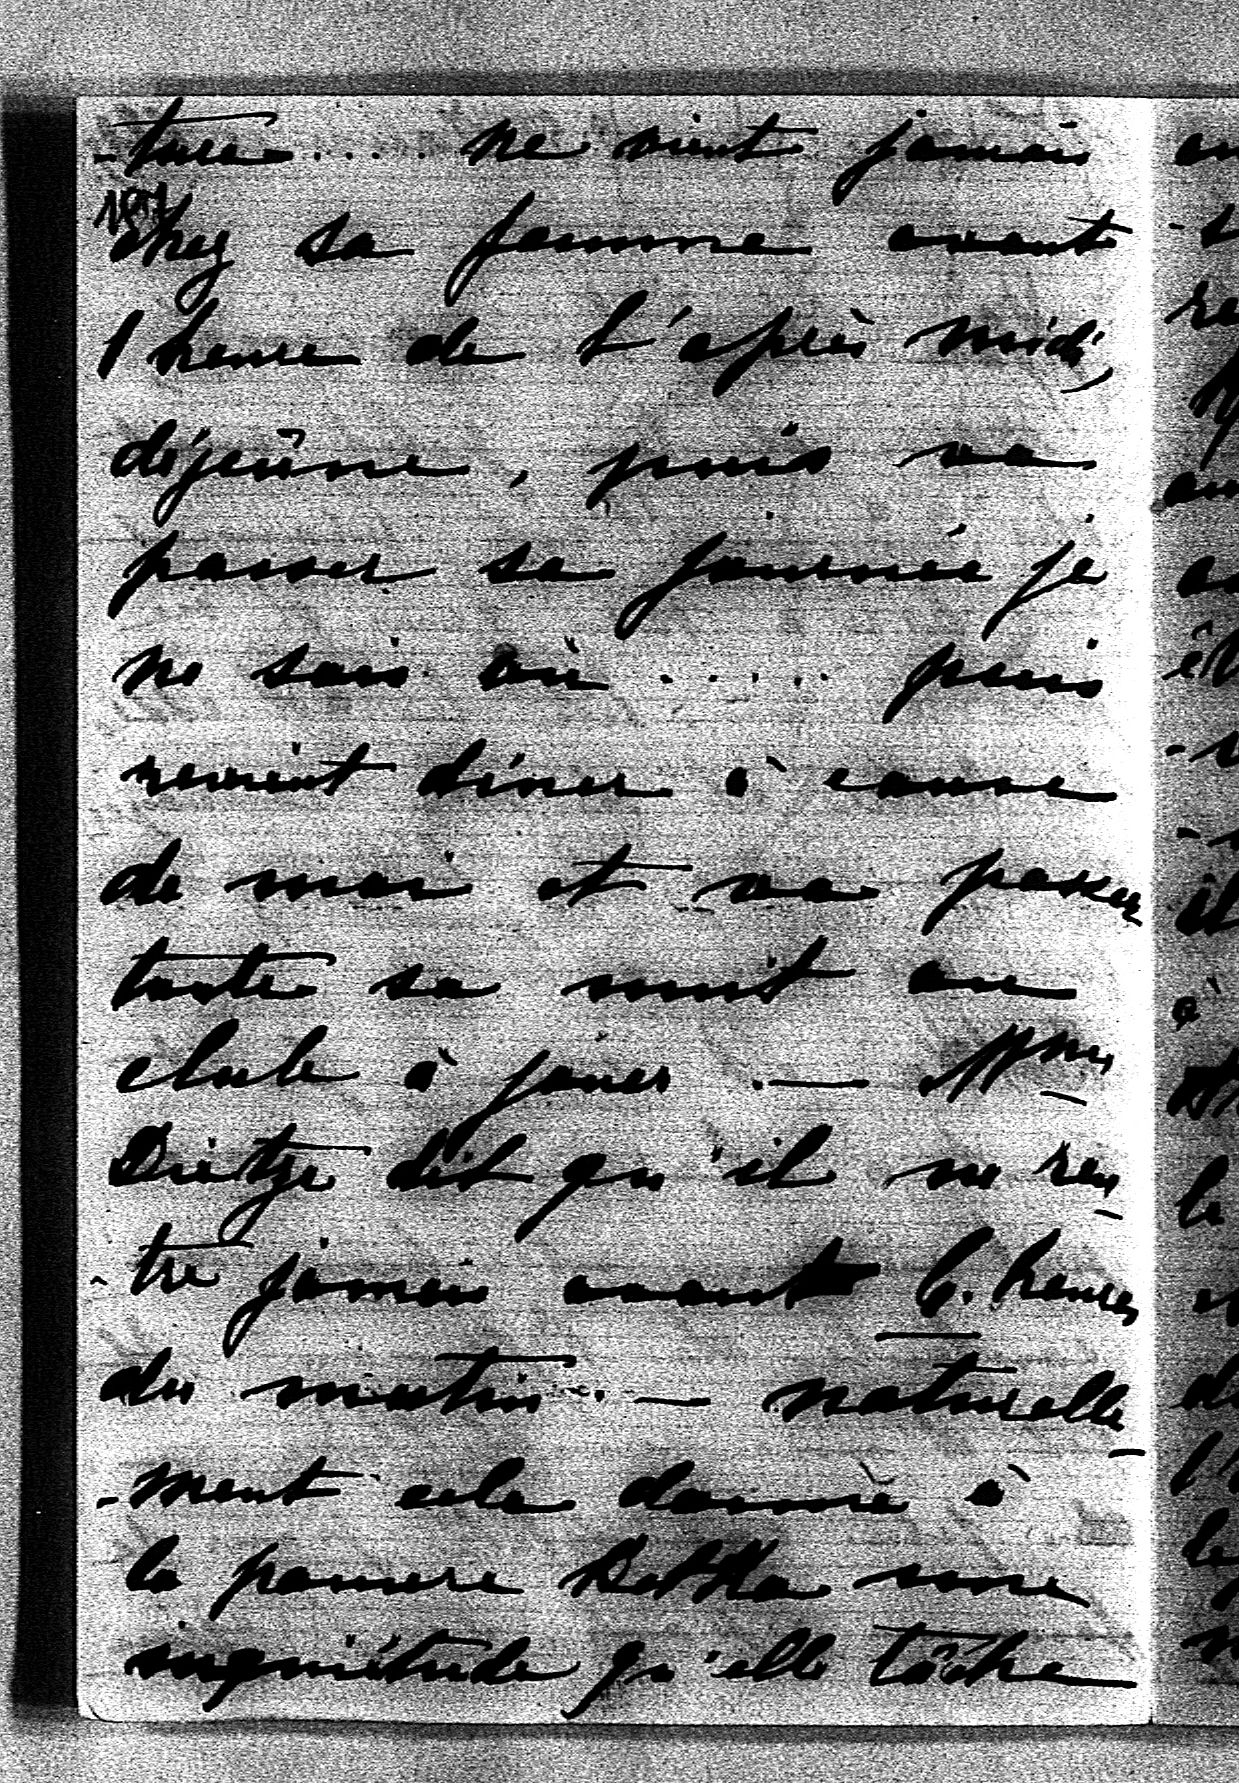 -ture .... ne vient jamais
chez sa femme avant
1 heure de l'après midi,
déjeûne, puis va
passer sa journée je
ne sais où ..... puis
revient dîner à cause
de moi et va passer
toute sa nuit au
club à jouer. — Mme
Dietze dit qu'il ne ren
-tre jamais avant 6. heures
du matin. — naturelle
-ment cela donne à
la pauvre une
inquiétude qu'elle tâche